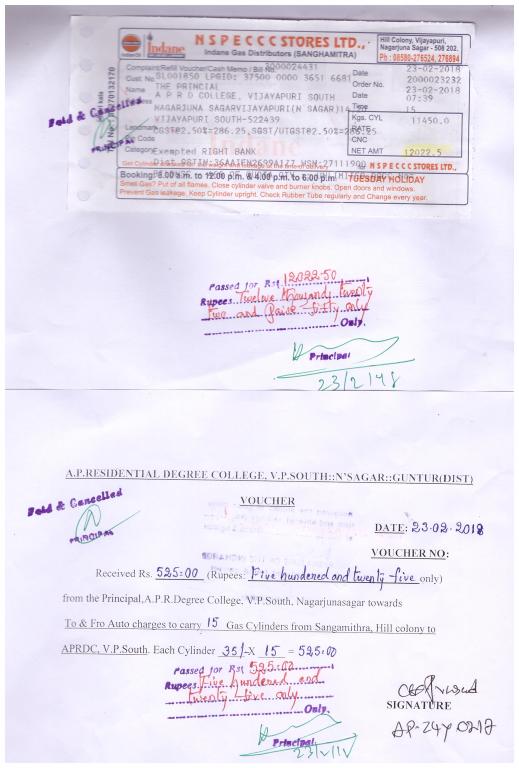 NSPECCC STORES LTD.,
Indane Gas Distributors (SANGHAMITRA)
Hill Colony, Vijayapuri,
Nagarjuna Sagar - 508 202.
Ph : 08580-276524, 276894
Indane
Complaint/Refill Voucher/Cash Memo / Bill No. 3000024431
Date 23-02-2018
Cust. No. SL001850 LPGID: 37500 0000 3651 6681
Order No. 2000023232
Name THE PRINCIAL
Date 23-02-2018
A P R D COLLEGE, VIJAYAPURI SOUTH
07:39
NAGARJUNA SAGARVIJAYAPURI(N SAGAR)
15
VIJAYAPURI SOUTH-522439
Kgs. CYL 11450.0
Landmark CGST@2.50%=286.25,SGST/UTGST@2.50%=286.25
RATE
Pin Code
CNC
Category Exempted RIGHT BANK
NET AMT 12022.5
For NSPECCC STORES LTD.,
Booking: 8.00 a.m. to 12.00 p.m. & 4.00 p.m. to 6.00 p.m TUESDAY HOLIDAY
Smell Gas? Put of all flames. Close cylinder valve and burner knobs. Open doors and windows.
Prevent Gas leakage, Keep Cylinder upright. Check Rubber Tube regularly and Change every year.
Paid & Cancelled
PRINCIPAL
Passed for Rs. 12022.50
Rupees Twelve thousand, twenty
two and Paise fifty only
Only.
Principal
23/2/18
A.P.RESIDENTIAL DEGREE COLLEGE, V.P.SOUTH::N'SAGAR::GUNTUR(DIST)
Paid & Cancelled
VOUCHER
PRINCIPAL
DATE: 23-02-2018
VOUCHER NO:
Received Rs. 525=00 (Rupees: Five hundered and twenty five only)
from the Principal,A.P.R.Degree College, V.P.South, Nagarjunasagar towards
To & Fro Auto charges to carry 15 Gas Cylinders from Sangamithra, Hill colony to
APRDC, V.P.South. Each Cylinder 35/-X 15 = 525=00
Passed for Rs. 525.00
Rupees Five hundered and
twenty five only
Only.
SIGNATURE
Principal